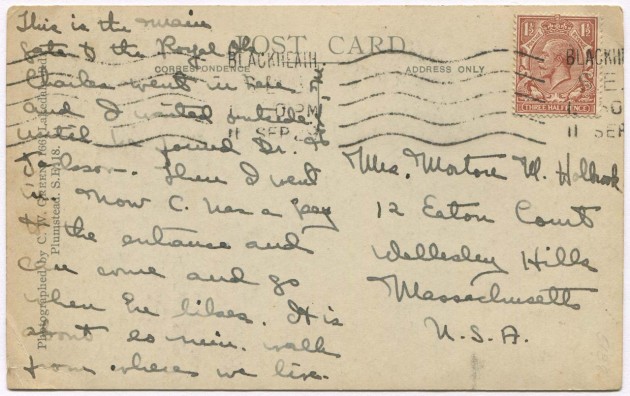 POST CARD
CORRESPONDENCE
ADDRESS ONLY
This is the main
gate of the Royal Obs.
Charles went in here
and I waited outside
until he joined Dr.
Then I went
in. Now C. has a key
to the entrance and
can come and go
when he likes. It is
about 20 min. walk
from where we live.
Mrs. Morton M. Holbrook
12 Eaton Court
Wellesley Hills
Massachusetts
U.S.A.
1½ 1½
THREE HALF PENCE
BLACKHEATH
PM
11 SEP
BLACKH
11 SEP
Photographed by C. W. GREEN, 766
Plumstead. S.E. 18.